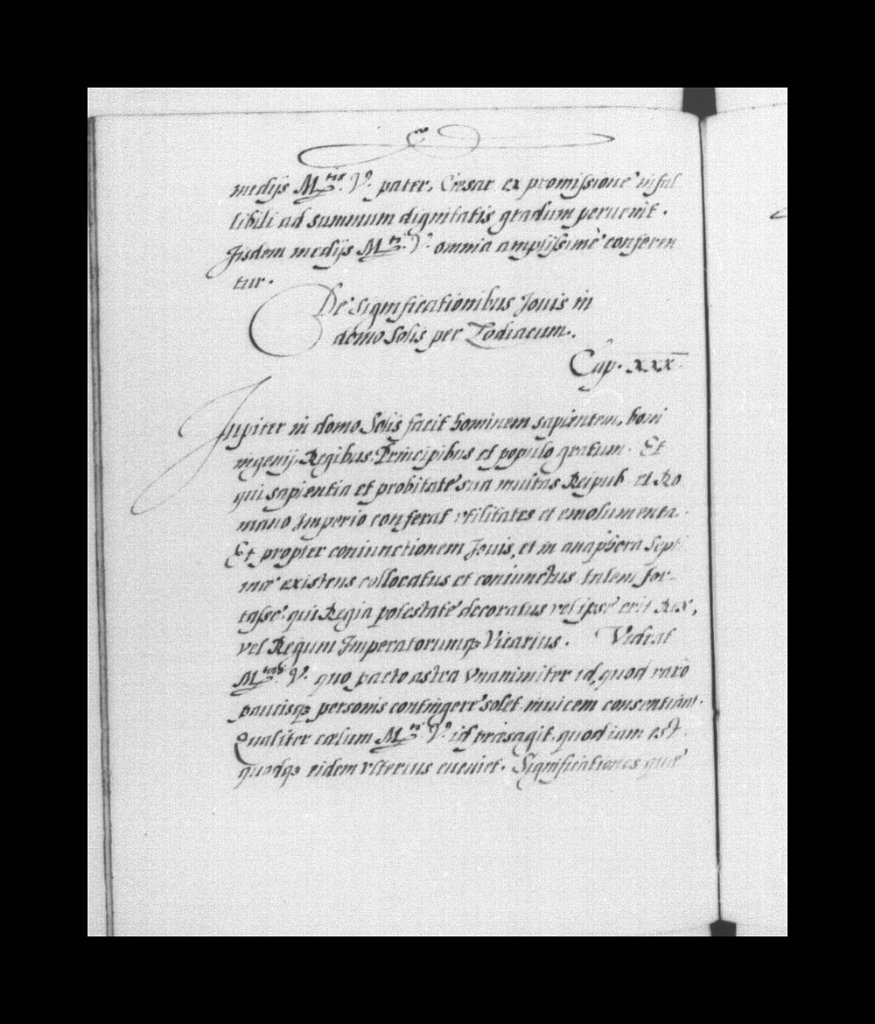 medijs M.tis V.ᵃ pater, Cæsar ex promissione infal
libili ad summum dignitatis gradum peruenit.
Jisdem medijs M.ti V.ᵃ omnia amplissimè conferen
tur.
De significationibus Jouis in
domo Solis per Zodiacum.
Cap. xxx.
Jupiter in domo Solis facit hominem sapientem, boni
ingenij Regibus Principibus et populo gratum. Et
qui sapientia et probitate sua multas Reipub. et Ro
mano Imperio conferat vtilitates et emolumenta.
Et propter coniunctionem Jouis, et in anaphora Septi
mæ existens collocatus et coniunctus. Talem for
tasse qui Regia potestate decoratus vel ipse erit Rex,
vel Regum Imperatorumq; Vicarius. Videat
M.tas V. quo pacto astra vnanimiter id, quod rarò
paucisq; personis contingere solet inuicem consentiant.
Qualiter cælum M.ti V.ᵃ id præsagit quod iam est,
quodq; eidem vlterius eueniet. Significationes quæ